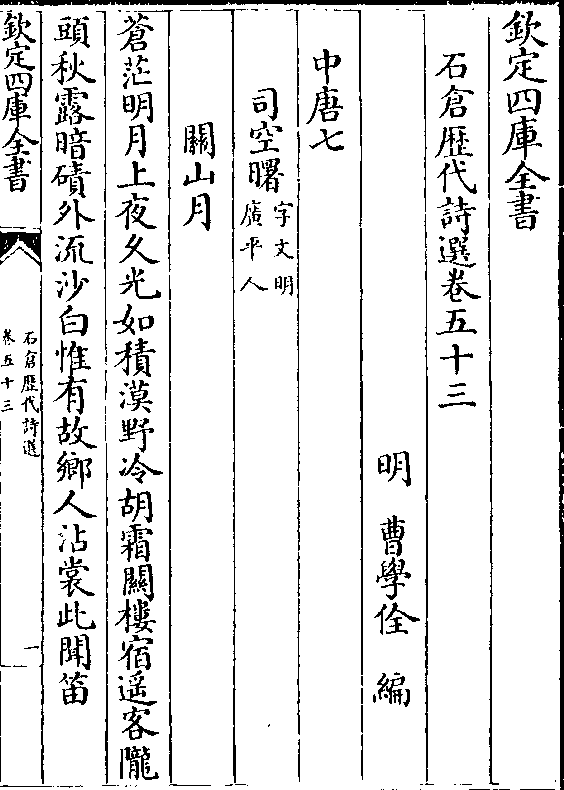 欽定四庫全書
石倉歴代詩選卷五十三
明 曹學佺 編
中唐七
司空曙字文明
廣平人
關山月
蒼茫明月上夜久光如積漠野冷胡霜關樓宿遥客隴
頭秋露暗磧外流沙白惟有故鄉人沾裳此聞笛
欽定四庫全書
石倉歴代詩選
卷五十三
一